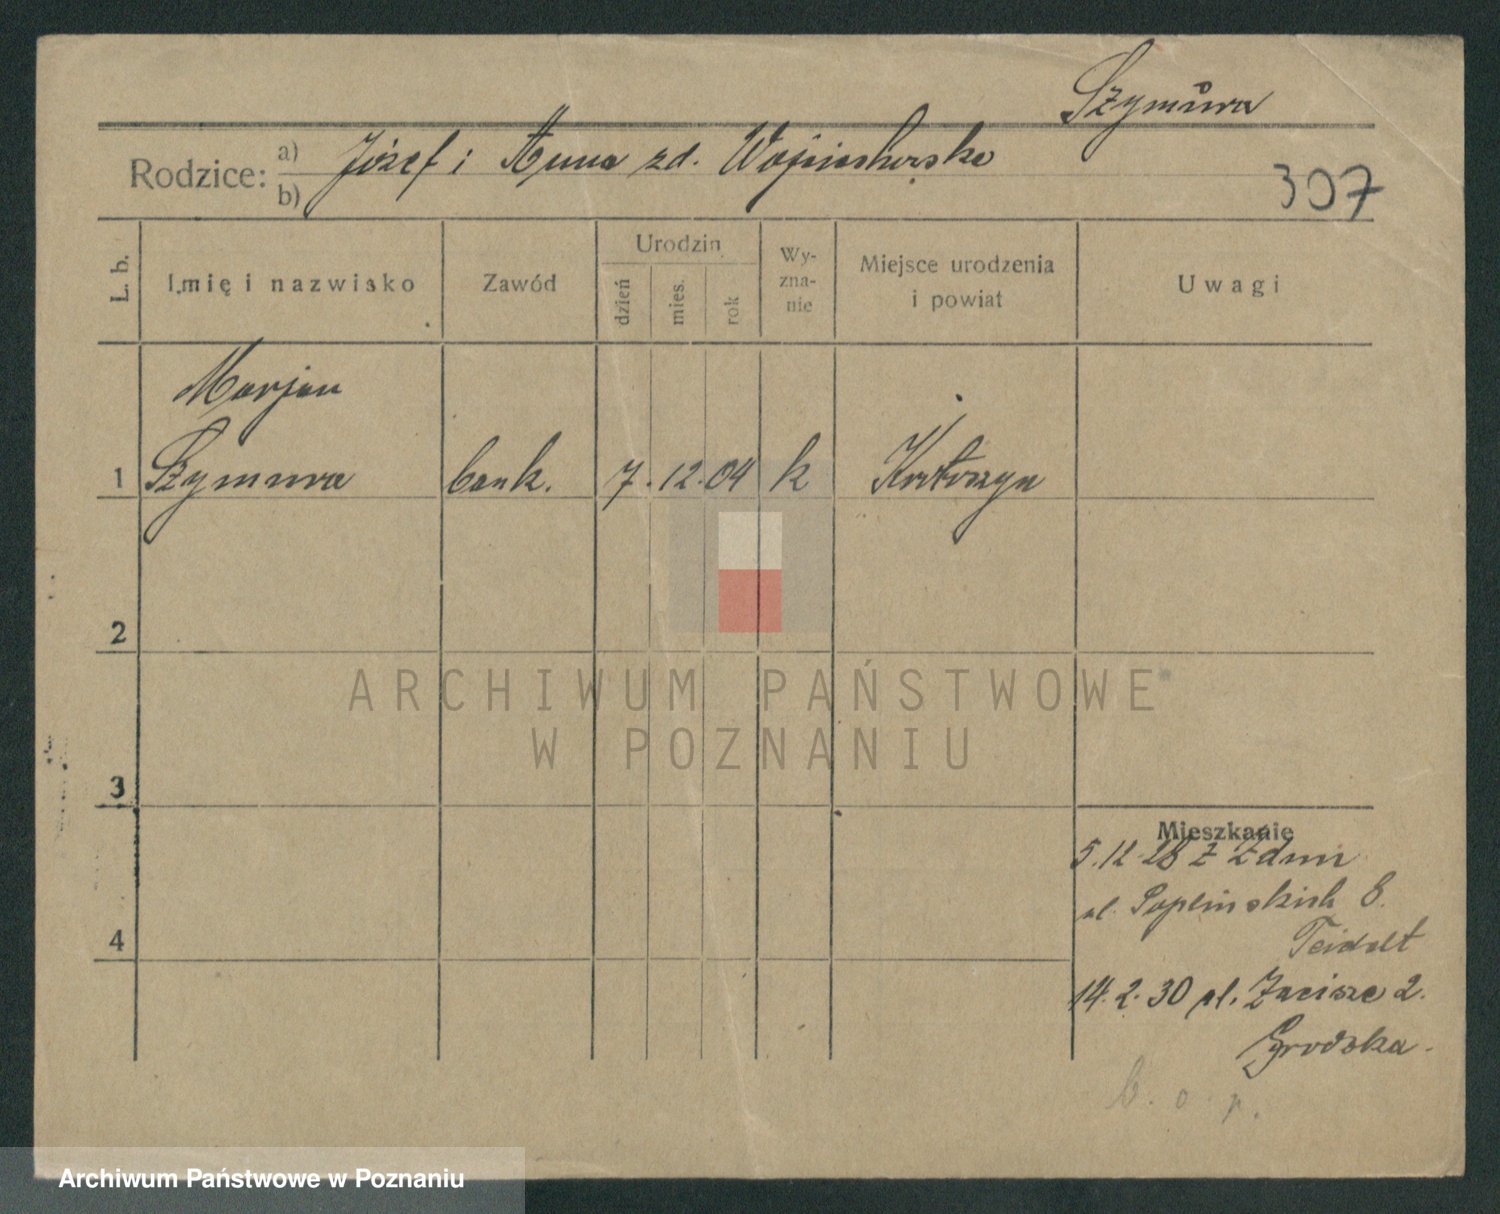 Szymura
Rodzice: a) Józef i Anna zd. Wojciechowska
b)
307
L. b.
Imię i nazwisko
Zawód
Urodzin
dzień
mies.
rok
Wy-
zna-
nie
Miejsce urodzenia
i powiat
Uwagi
Marjan
1 Szymura bank. 7. 12. 04 k
2
ARCHIWUM PAŃSTWOWE
W POZNANIU
3
Mieszkanie
5.12.28 z Zdun
ul. Poplińskich 8.
4
14.2.30 ul. Zacisze 2.
Grodzka.
b. o. p.
Archiwum Państwowe w Poznaniu